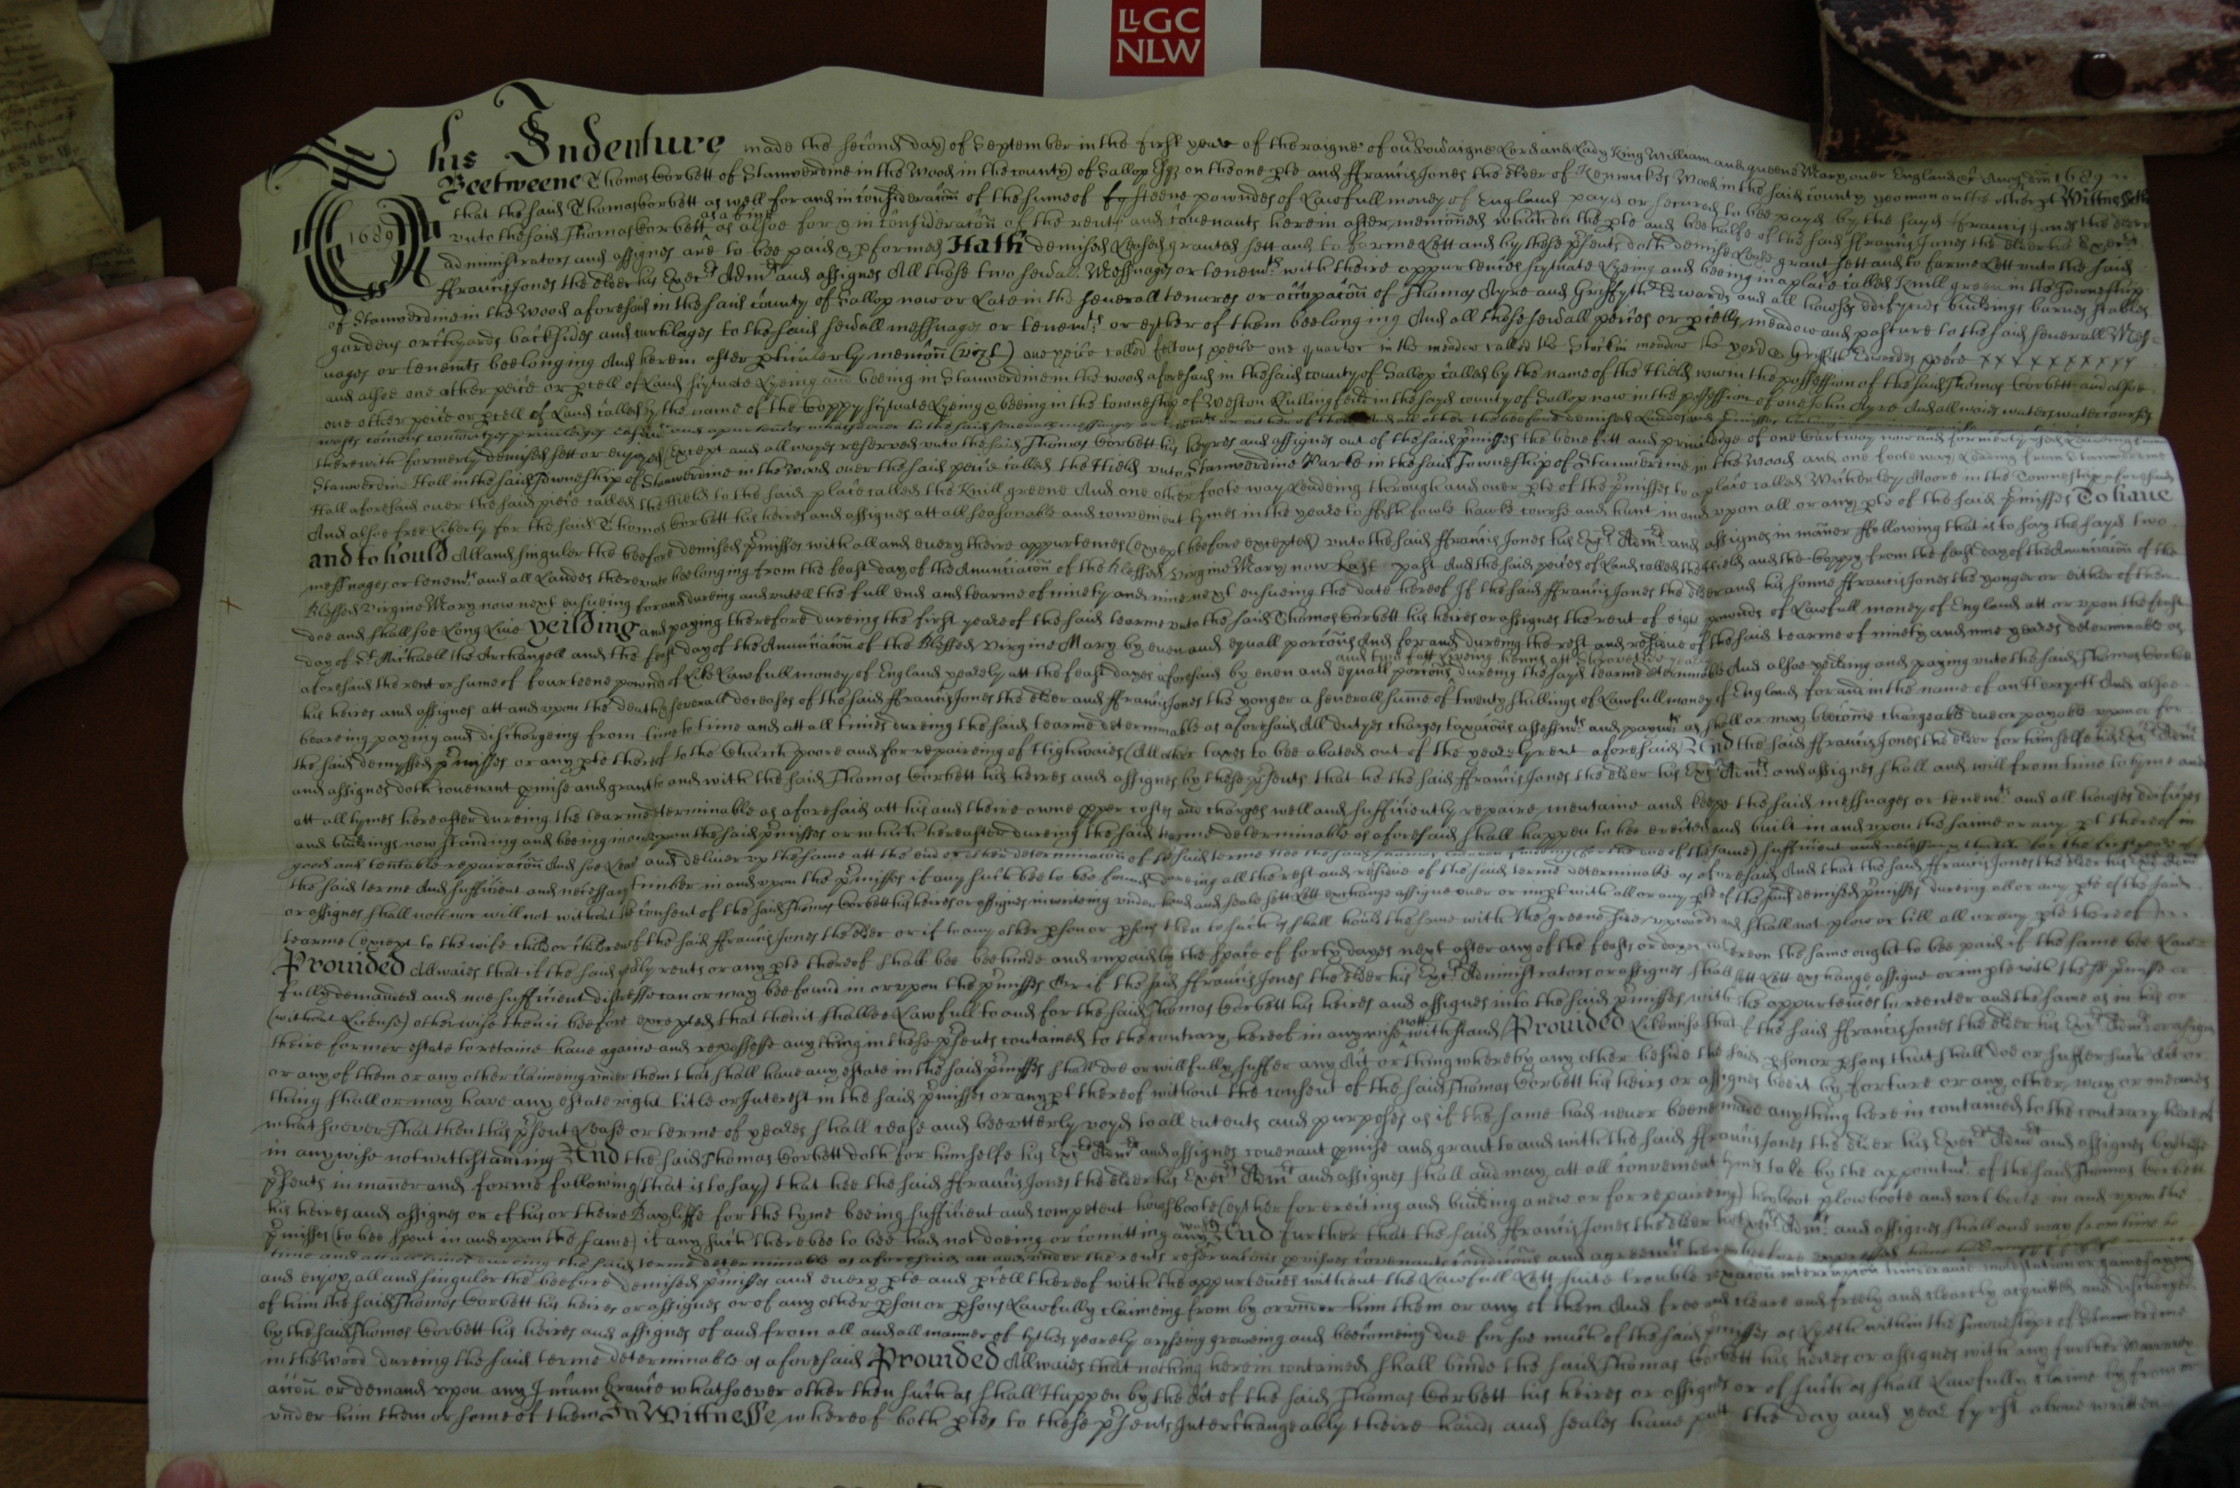 LLGC
NLW
This Indenture made the second day of September in the first yeare of the raigne of our Sovraigne Lord and Lady King William and queene Mary over England &c Anoq dom 1689
1689
Beetweene Thomas Corbett of Stanwerdine in the Wood in the county of Sallop Esqr on the one pte and ffrancis Jones the elder of Kenwickes Wood in the said county yeoman on the other pt Wittnesseth
that the said Thomas Corbett as well for and in consideracon of the sume of fifteene powndes of Lawfull money of England payd or secured to bee payd by the sayd ffrancis Jones the elder
unto the said Thomas Corbett as alsoe for & in consideracon of the rents and covenants herein after mencioned which on the pte and behalfe of the said ffrancis Jones the elder his Execrs
administrators and assignes are to bee paid & pformed Hath demised Leased granted sett and to farme Lett and by these psents doth demise Lease grant sett and to farme Lett unto the said
ffrancis Jones the elder his Execrs Admrs and assignes All those two sevall Messuages or tenemts with theire appurtences scytuate Lyeing and beeing in a place called Knill green in the Towneship
of Stanwerdine in the Wood aforesaid in the said county of Sallop now or Late in the severall tenures or occupacon of Thomas Ayre and Griffyth Edwards and all howses edifyces buildings barnes stables
gardens orchyards backsides and curtilages to the said sevall messuages or tenemts or eyther of them beelonging And all those sevall peices or pcells meadow and pasture to the said severall Mes=
uages or tenemts beelonging And herein after pticulerly mencon (vizt) one peice called one quarter in the meadow called the meadow the yord & Griffith Edwardes peice xxxxxxxxxx
and alsoe one other peice or pcell of Land scytuate Lyeing and beeing in Stanwerdine in the wood aforesaid in the said county of Sallop called by the name of the Hield now in the possession of the said Thomas Corbett and alsoe
one other peice or pcell of Land called by the name of the Coppy scytuate Lyeing & beeing in the towneship of Weston Lullingfeild in the sayd county of Sallop now in the possession of one John Ayre And all waies waters watercourses
therewith formerly demised sett or enjoyed (except and all wayes reserved unto the said Thomas Corbett his heyres and assignes out of the said pmisses the benefitt and priviledge of one Cartway now and formerly used
Stanwerdine Hall in the said Towneship of Stanwerdine in the Wood over the said peice called the Hield unto Stanwerdine Parke in the said Towneship of Stanwerdine in the Wood and one foote way Leading from Stanwerdine
Hall aforesaid over the said peice called the Hield to the said place called the Knill greene And one other foote way Leadeing through and over pte of the pmisses to a place called Moore in the Towneship aforesaid
And alsoe free Liberty for the said Thomas Corbett his heires and assignes att all seasonable and convenient tymes in the yeare to ffish fowle hawke course and hunt in and upon all or any pte of the said pmisses To have
and to hould All and singuler the beefore demised pmisses with all and every theire appurtences (except beefore excepted) unto the said ffrancis Jones his Execrs Admrs and assignes in maner ffollowing that is to say the sayd two
messuages or tenemts and all Landes thereunto beelonging from the feast day of the Anunciacon of the Blessed Virgine Mary now Last past And the said peices of Land called the Hield and the Coppy from the feast day of the Anunciacon of the
Blessed Virgine Mary now next ensueing for and dureing and untell the full end and tearme of ninety and nine next ensueing the date hereof If the said ffrancis Jones the elder and his sonne ffrancis Jones the yonger or either of them
doe and shall soe Long Live yeilding and paying therefore dureing the first yeare of the said tearme unto the said Thomas Corbett his heires or assignes the rent of eight pownds of Lawfull money of England att or upon the feast
day of St Michaell the Archangell and the feast day of the Anunciacon of the Blessed Virgine Mary by even and equall porcons And for and dureing the rest and residue of the said tearme of ninety and nine yeares determinable as
aforesaid the rent or sume of fourteene pownds of Like Lawfull money of England yearely att the feast dayes aforesaid by even and equall porcons dureing the sayd tearme determinable And alsoe yeilding and paying unto the said Thomas Corbett
his heires and assignes att and upon the death & severall deceases of the said ffrancis Jones the elder and ffrancis Jones the yonger a severall sume of twenty shillings of Lawfull money of England for and in the name of an Herryott And alsoe
beareing paying and dischargeing from time to time and att all times dureing the said tearme determinable as aforesaid All dutyes charges taxacons assessmts and paymts as shall or may beecome chargeable due or payable upon or for
the said demysed pmisses or any pte thereof to the Church poore and for repaireing of Highwaies (All other taxes to bee abated out of the yearely rent aforesaid) And the said ffrancis Jones the elder for himselfe his Execrs Admrs
and assignes doth covenant pmise and grant to and with the said Thomas Corbett his heires and assignes by these psents that he the said ffrancis Jones the elder his Execrs Admrs and assignes shall and will from time to tyme and
att all tymes hereafter dureing the tearme determinable as aforesaid att his and theire owne pper costes and charges well and sufficiently repaire mentaine and keepe the said messuages or tenemts and all howses edifices
and buildings now standing and beeing in and upon the said pmisses or which hereafter dureing the said terme determinable as aforesaid shall happen to bee erected and built in and upon the same or any pt thereof in
good and tennable reparacon And soe Leave and deliver up the same att the end or other determinacon of the said terme
the said terme And sufficient and necessary timber in and upon the pmisses if any such bee to bee found dureing all the rest and residue of the said terme determinable as aforesaid And that the said ffrancis Jones the elder his Execrs Admrs
or assignes shall nott nor will not without the consent of the said Thomas Corbett his heires or assignes in writeing under hand and seale sett Lett exchange assigne over or impt with all or any pte of the said demised pmisses dureing all or any pte of the said
tearme (except to the wife child or children of the said ffrancis Jones the elder or if to any other pson or psons then to such as shall the same with the greene side upwards and shall not plow or till all or any pte thereof)
Provided Allwaies that if the said yearly rents or any pte thereof shall bee beehinde and unpaid by the space of forty dayes next after any of the feasts or dayes whereon the same ought to bee paid if the same bee Law=
fully demanded and noe sufficient distresse can or may bee found in or upon the pmisses Or if the said ffrancis Jones the elder his Execrs Administrators or assignes shall sett Lett exchange assigne or impte with the sd pmisses
(without License) otherwise then is beefore excepted that then it shall bee Lawfull to and for the said Thomas Corbett his heires and assignes into the said pmisses with the appurtences to reenter and the same as in his or
theire former estate to retaine have againe and repossesse any thing in these psents contained to the contrary hereof in any wise nott withstand Provided Likewise that if the said ffrancis Jones the elder his Execrs Admrs or assignes
or any of them or any other Claimeing under them that shall have any estate in the said pmisses shall doe or willfully suffer any Act or thing whereby any other beside the said pson or psons that shall doe or suffer such Act or
thing shall or may have any estate right title or Interest in the said pmisses or any pt thereof without the consent of the said Thomas Corbett his heirs or assignes bee it by forture or any other way or meanes
whatsoever That then this psent Lease or terme of yeares shall cease and bee utterly voyd to all entents and purposes as if the same had never beene made any thing here in contained to the contrary hereof
in any wise notwithstanding And the said Thomas Corbett doth for himselfe his Execrs Admrs and assignes covenant pmise and grant to and with the said ffrancis Jones the elder his Execrs Admrs and assignes by these
psents in maner and forme following (that is to say) that hee the said ffrancis Jones the elder his Execrs Admrs and assignes shall and may att all convenient tymes to be by the appointmt of the said Thomas Corbett
his heires and assignes or of his or theire Bayliffe for the tyme beeing sufficient and competent howsboote (eyther for erecting and building anew or for repaireing) heyboot plowboote and cart boote in and upon the
pmisses (to bee spent in and upon the same) if any such there bee to bee had not doeing or comitting any wast And further that the said ffrancis Jones the elder his Execrs Admrs and assignes shall and may from time to
time and att all times dureing the said terme determinable as aforesaid att and under the rents reservacons covenants condicons and agreemts herein before expressed
and enjoy all and singuler the beefore demised pmisses and every pte and pcell thereof with the appurtences without the Lawfull Lett suite trouble
of him the said Thomas Corbett his heires or assignes or of any other pson or psons Lawfully claimeing from by or under him them or any of them And free and cleare and freely and clearely acquitted and discharged
by the said Thomas Corbett his heires and assignes of and from all and all manner of tythes yearely ariseing groweing and becomeing due for soe much of the said pmisses as Lyeth within the Towneshipe of Stanwerdine
in the Wood dureing the said terme determinable as aforesaid Provided Allwaies that nothing herein contained shall binde the said Thomas Corbett his heires or assignes with any further warranty
accon or demand upon any Incumbrance whatsoever other then such as shall Happen by the act of the said Thomas Corbett his heires or assignes or of such as shall Lawfully claime by from or
under him them or some of them In Wittnesse whereof both ptes to these psents Interchangeably theire hands and seales have putt the day and year fyrst above written